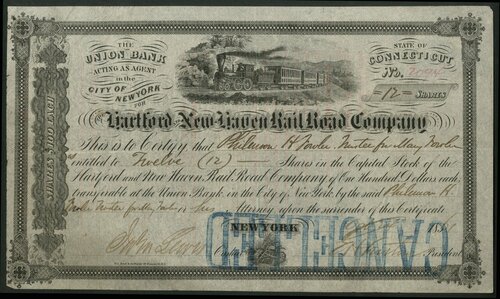 THE
UNION BANK
ACTING AS AGENT
in the
CITY OF NEW YORK
FOR
STATE OF
CONNECTICUT
No.
12 SHARES
SHARES $100 EACH
Hartford & New Haven Rail Road Company
This is to Certify, that Philemon H Fowler Trustee for Mary Fowler
is entitled to Twelve (12) Shares in the Capital Stock of the
Hartford and New Haven Rail Road Company of One Hundred Dollars each
transferable at the Union Bank, in the City of New York by the said Philemon H.
Fowler Trustee for Mary Fowler or his Attorney upon the surrender of this Certificate.
NEW YORK
CANCELLED
Cashier
President